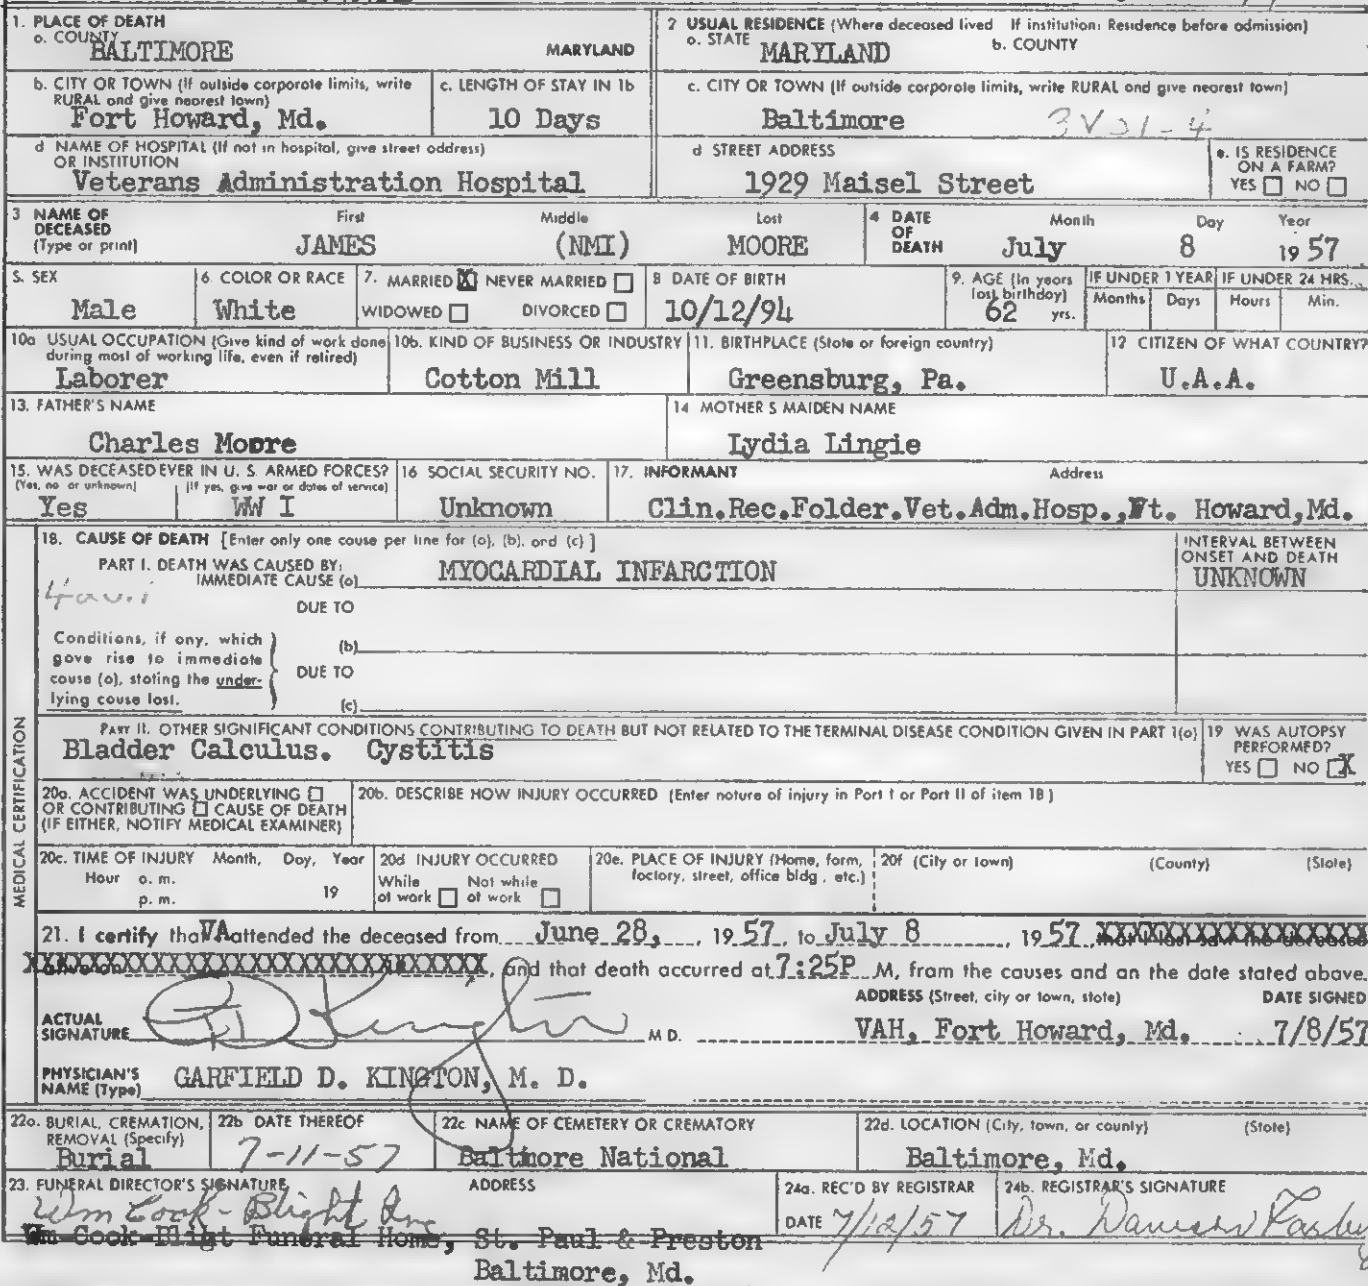 1. PLACE OF DEATH
a. COUNTY
BALTIMORE MARYLAND
2 USUAL RESIDENCE (Where deceased lived If institution: Residence before admission)
a. STATE MARYLAND b. COUNTY
b. CITY OR TOWN (If outside corporate limits, write
RURAL and give nearest town)
Fort Howard, Md.
c. LENGTH OF STAY IN 1b
10 Days
c. CITY OR TOWN (If outside corporate limits, write RURAL and give nearest town)
Baltimore
d NAME OF HOSPITAL (If not in hospital, give street address)
OR INSTITUTION
Veterans Administration Hospital
d STREET ADDRESS
1929 Maisel Street
e. IS RESIDENCE
ON A FARM?
YES NO
3 NAME OF
DECEASED
(Type or print)
First Middle Last
JAMES (NMI) MOORE
4 DATE
OF
DEATH
Month Day Year
July 8 1957
5. SEX
Male
6. COLOR OR RACE
White
7. MARRIED X NEVER MARRIED
WIDOWED DIVORCED
8 DATE OF BIRTH
10/12/94
9. AGE (In years
last birthday)
62 yrs.
IF UNDER 1 YEAR IF UNDER 24 HRS.
Months Days Hours Min.
10a USUAL OCCUPATION (Give kind of work done
during most of working life, even if retired)
Laborer
10b. KIND OF BUSINESS OR INDUSTRY
Cotton Mill
11. BIRTHPLACE (State or foreign country)
Greensburg, Pa.
12 CITIZEN OF WHAT COUNTRY?
U.A.A.
13. FATHER'S NAME
Charles Moore
14 MOTHER S MAIDEN NAME
Lydia Lingie
15. WAS DECEASED EVER IN U. S. ARMED FORCES?
(Yes, no or unknown) (If yes, give war or dates of service)
Yes WW I
16 SOCIAL SECURITY NO.
Unknown
17. INFORMANT Address
Clin.Rec.Folder.Vet.Adm.Hosp.,Ft. Howard,Md.
18. CAUSE OF DEATH [Enter only one cause per line for (a), (b), and (c) ]
PART I. DEATH WAS CAUSED BY:
IMMEDIATE CAUSE (a) MYOCARDIAL INFARCTION
INTERVAL BETWEEN
ONSET AND DEATH
UNKNOWN
DUE TO
Conditions, if any, which
gave rise to immediate
cause (a), stating the under-
lying cause last.
(b)
DUE TO
(c)
PART II. OTHER SIGNIFICANT CONDITIONS CONTRIBUTING TO DEATH BUT NOT RELATED TO THE TERMINAL DISEASE CONDITION GIVEN IN PART 1(a)
Bladder Calculus. Cystitis
19 WAS AUTOPSY
PERFORMED?
YES NO X
MEDICAL CERTIFICATION
20a. ACCIDENT WAS UNDERLYING
OR CONTRIBUTING CAUSE OF DEATH
(IF EITHER, NOTIFY MEDICAL EXAMINER)
20b. DESCRIBE HOW INJURY OCCURRED (Enter nature of injury in Part I or Part II of item 18 )
20c. TIME OF INJURY Month, Day, Year
Hour a. m.
p. m. 19
20d INJURY OCCURRED
While Not while
at work at work
20e. PLACE OF INJURY (Home, farm,
factory, street, office bldg , etc.)
20f (City or town) (County) (State)
21. I certify that VA attended the deceased from June 28, 1957, to July 8 1957, XXXXXXXXXXXXXXXXX
XXXXXXXXXXXXXXXXXXXXXXXXXXXX, and that death occurred at 7:25P M, from the causes and on the date stated above.
ADDRESS (Street, city or town, state) DATE SIGNED
ACTUAL
SIGNATURE M D. VAH, Fort Howard, Md. 7/8/57
PHYSICIAN'S
NAME (Type) GARFIELD D. KINGTON, M. D.
22a. BURIAL, CREMATION,
REMOVAL (Specify)
Burial
22b DATE THEREOF
7-11-57
22c NAME OF CEMETERY OR CREMATORY
Baltimore National
22d. LOCATION (City, town, or county) (State)
Baltimore, Md.
23. FUNERAL DIRECTOR'S SIGNATURE ADDRESS
Wm Cook-Blight Inc
Wm Cook-Bligt Funeral Home, St. Paul & Preston
Baltimore, Md.
24a. REC'D BY REGISTRAR
DATE 7/12/57
24b. REGISTRAR'S SIGNATURE
Dr.